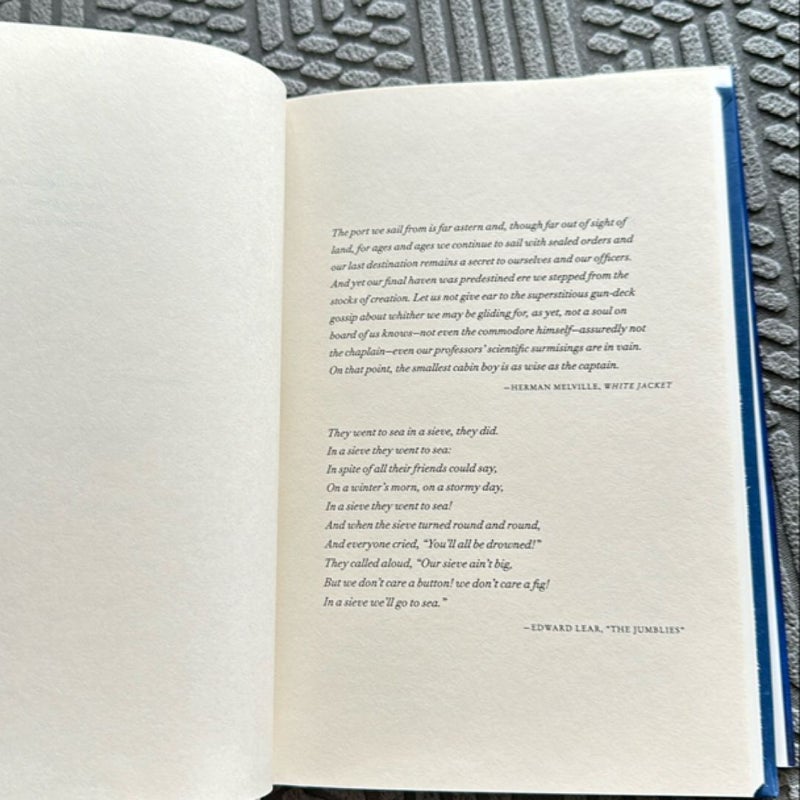 The port we sail from is far astern and, though far out of sight of
land, for ages and ages we continue to sail with sealed orders and
our last destination remains a secret to ourselves and our officers.
And yet our final haven was predestined ere we stepped from the
stocks of creation. Let us not give ear to the superstitious gun-deck
gossip about whither we may be gliding for, as yet, not a soul on
board of us knows—not even the commodore himself—assuredly not
the chaplain—even our professors' scientific surmisings are in vain.
On that point, the smallest cabin boy is as wise as the captain.
—HERMAN MELVILLE, WHITE JACKET
They went to sea in a sieve, they did.
In a sieve they went to sea:
In spite of all their friends could say,
On a winter's morn, on a stormy day,
In a sieve they went to sea!
And when the sieve turned round and round,
And everyone cried, "You'll all be drowned!"
They called aloud, "Our sieve ain't big,
But we don't care a button! we don't care a fig!
In a sieve we'll go to sea."
—EDWARD LEAR, "THE JUMBLIES"